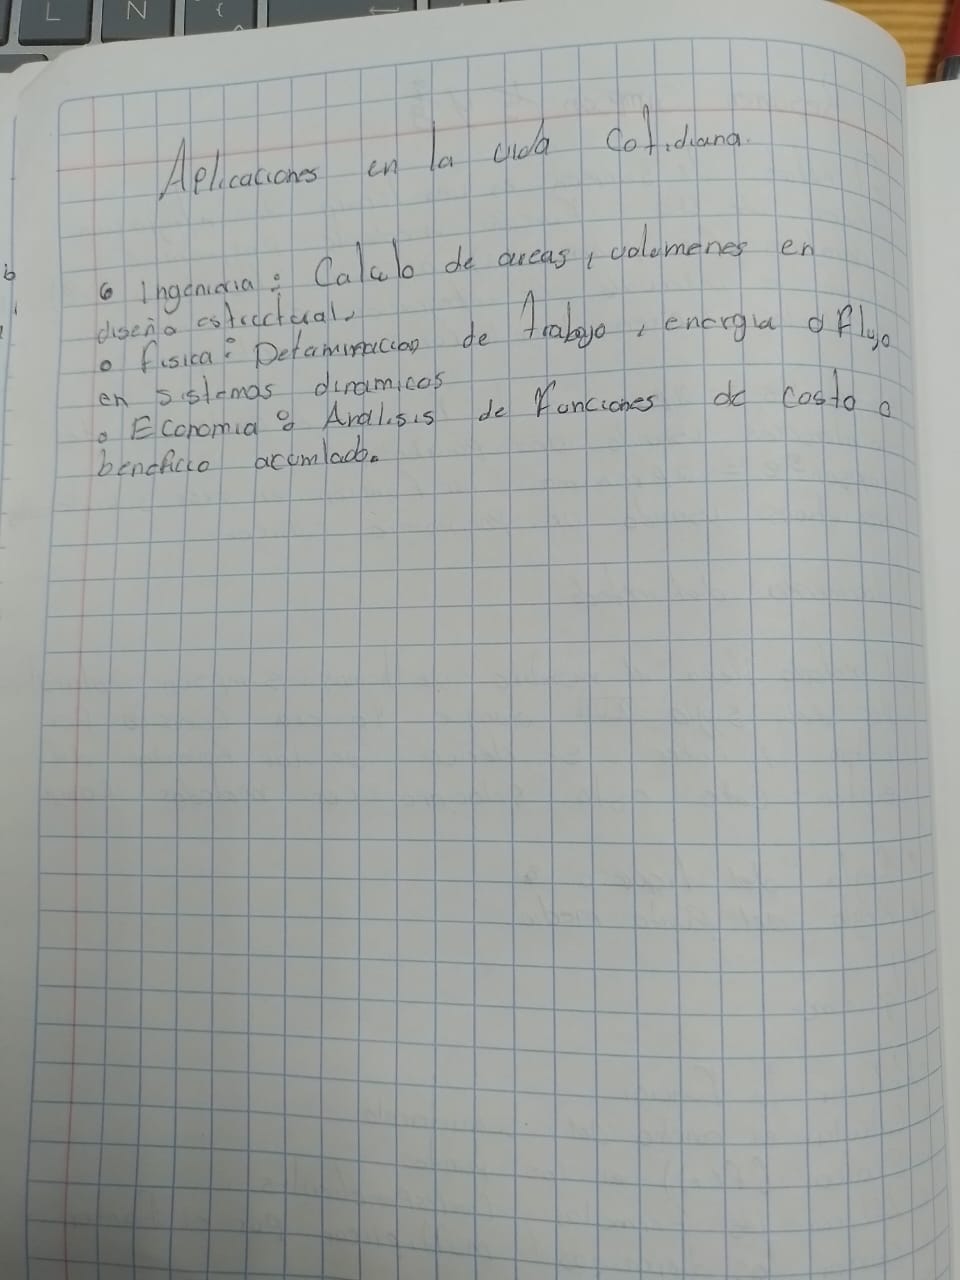 L N {
Aplicaciones en la vida Cotidiana.
o Ingenieria: Calculo de areas, volumenes en
diseño estructural.
o fisica: Determinacion de trabajo, energia o flujo
en sistemas dinamicos
o Economia: Analisis de Funciones de costo o
beneficio acumlado.